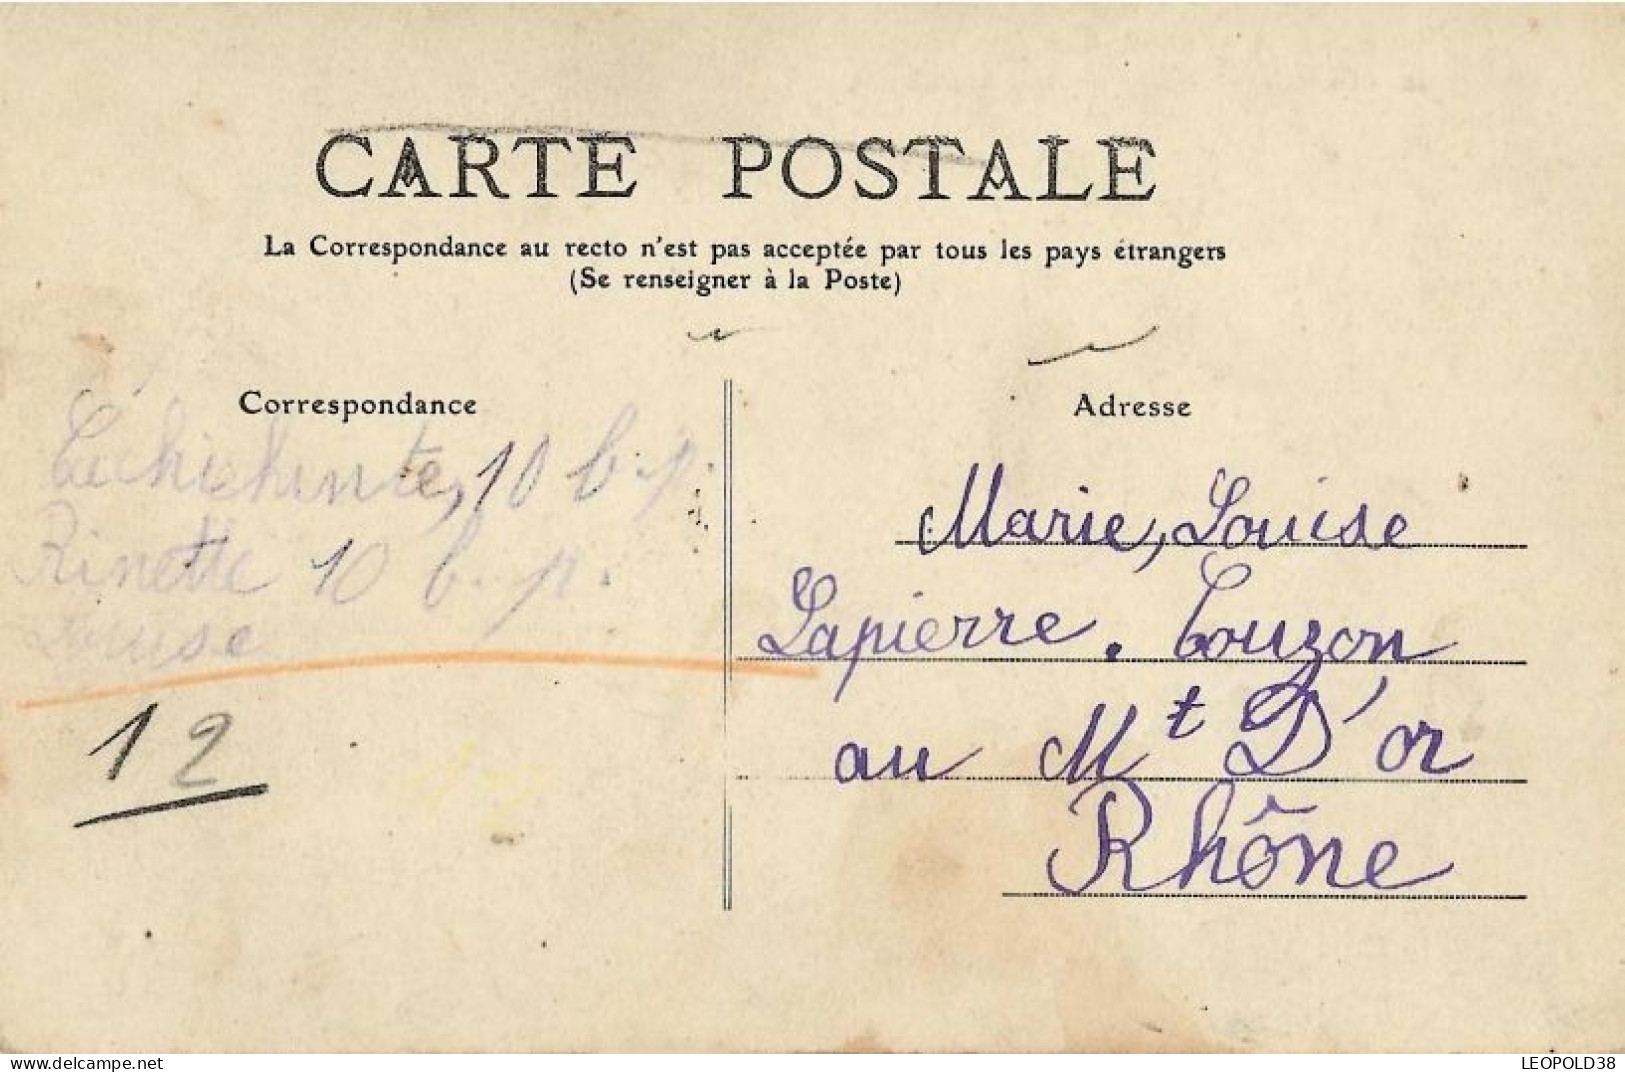 CARTE POSTALE
La Correspondance au recto n'est pas acceptée par tous les pays étrangers
(Se renseigner à la Poste)
Correspondance
10 b. p.
Rinette 10 b. p.
Louise
12
Adresse
Marie, Louise
Lapierre. Couzon
au Mt D'or
Rhône
delcampe.net
LEOPOLD38